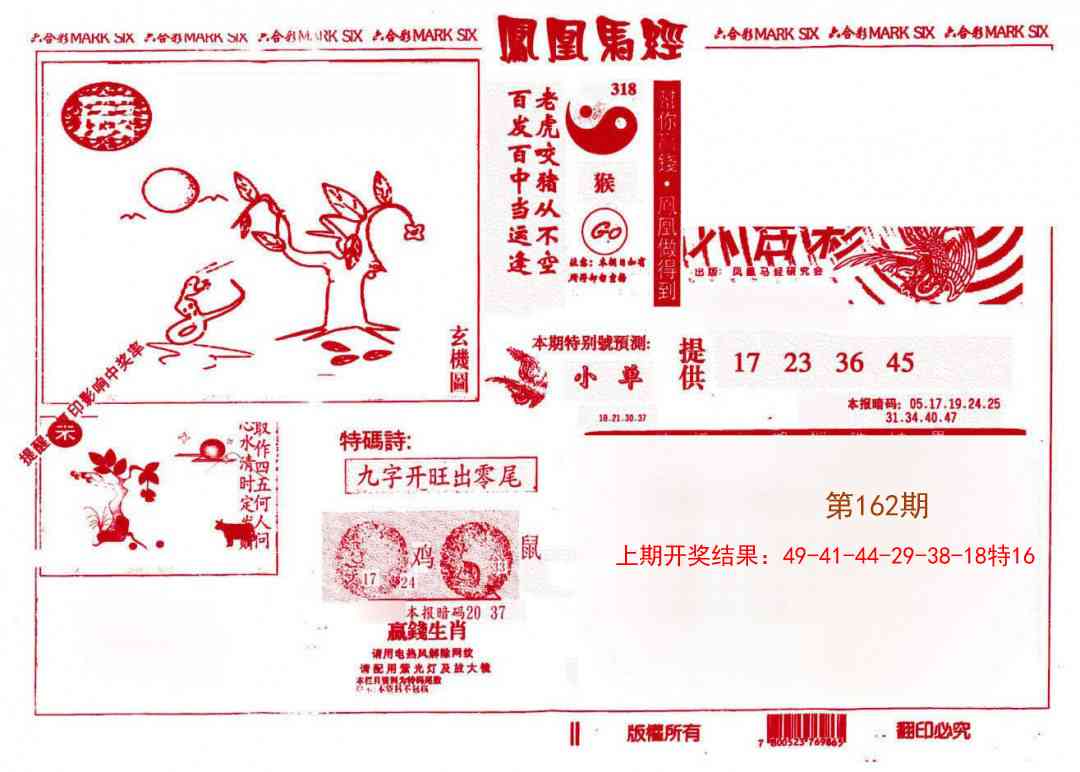 六合彩MARK SIX 六合彩MARK SIX 六合彩MARK SIX 六合彩MARK SIX
鳳凰馬經
六合彩MARK SIX 六合彩MARK SIX 六合彩MARK SIX
老虎咬猪从不空
百发百中当运逢
318
猴
Go
帮你赢錢·鳳凰做得到
出版：凤凰马经研究会
玄機圖
本期特别號預测:
小单
18.21.30.37
提供
17 23 36 45
本报暗码：05.17.19.24.25
31.34.40.47
提醒
印影响中奖率
取作四五何人问
心水清时定发财
特碼詩:
九字开旺出零尾
鸡
鼠
17
24
33
本报暗码20 37
赢錢生肖
请用电热风解除网纹
请配用紫光灯及放大镜
本栏目资料为特码尾数
第162期
上期开奖结果：49-41-44-29-38-18特16
版權所有
7 800523 769865
翻印必究